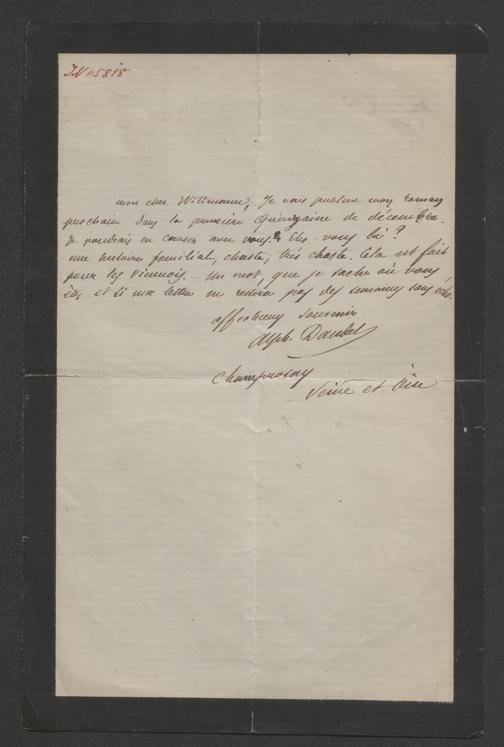 I.N 45818
mon cher Wittmann, Je vous prendrai mon roman
prochain dans la première quinzaine de décembre.
Je voudrais en causer avec vous. Etes-vous là ?
une histoire familiale, chaste, très chaste. Cela est fait
pour les viennois. Un mot, que je sache où vous
êtes et si ma lettre ne restera pas des semaines sans écho.
affectueux souvenir
Alph. Daudet
Champrosay
Seine et Oise